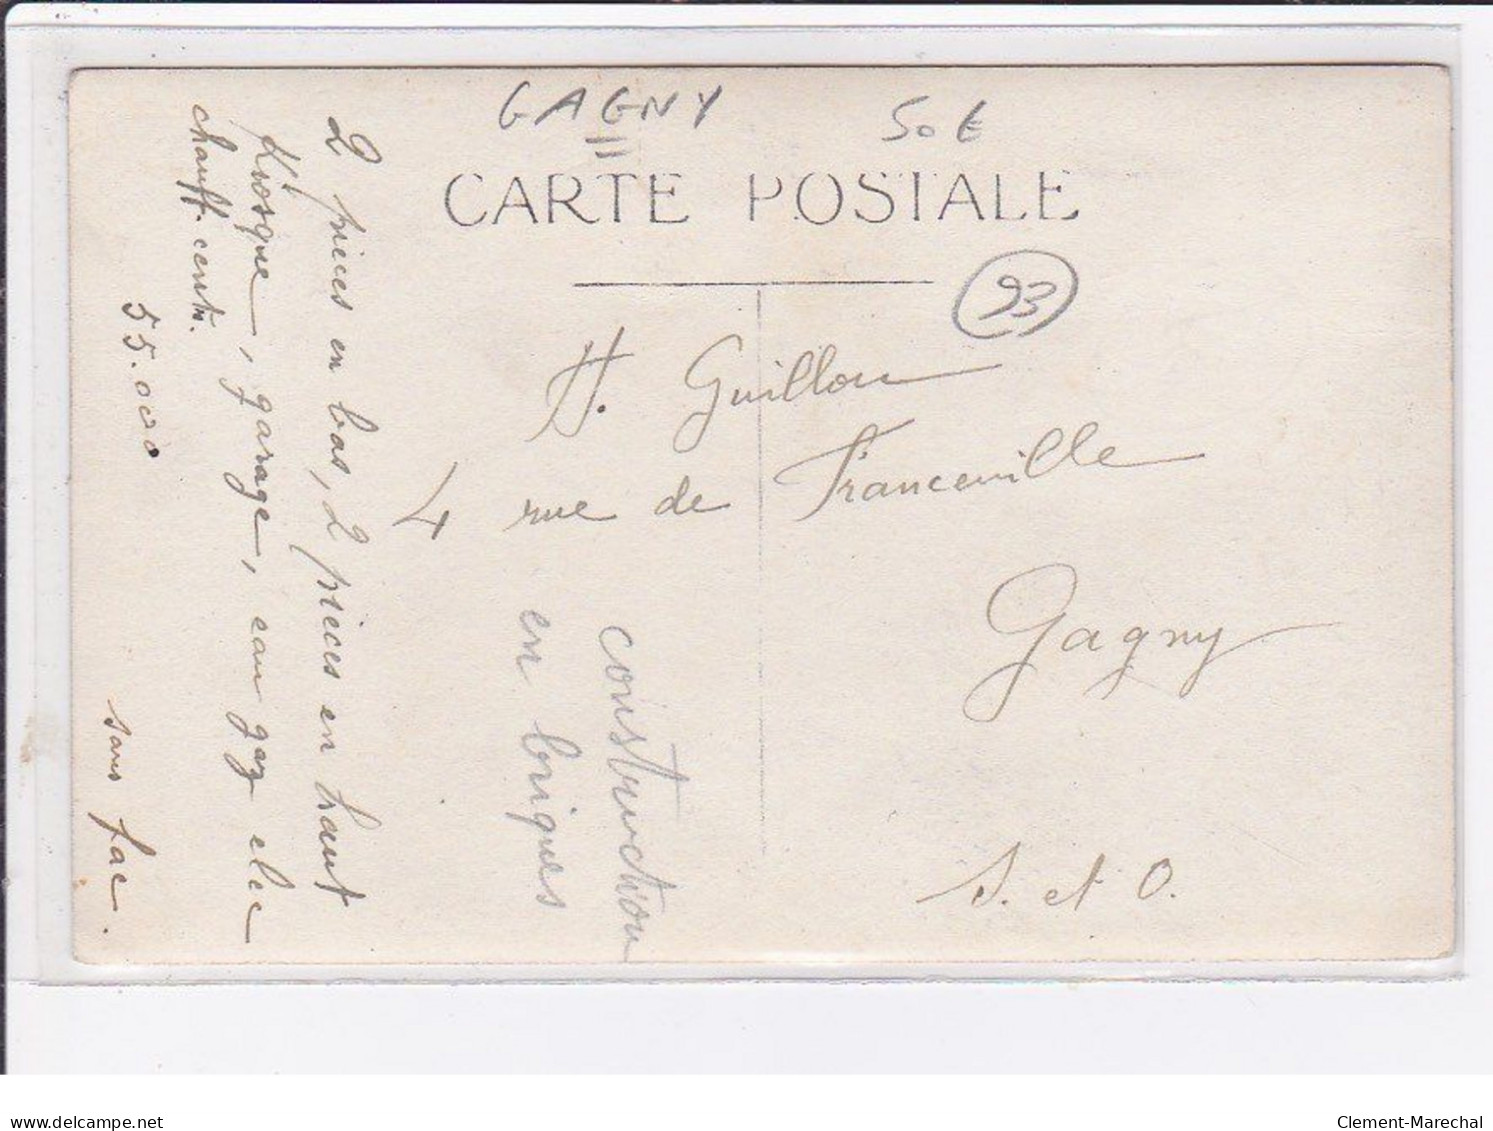 GAGNY
50€
CARTE POSTALE
93
H. Guillou
4 rue de Franceville
Gagny
S. et O.
construction
en briques
2 pièces en bas, 2 pièces en haut
Kiosque, garage, eau gaz elec
chauff. centr.
55.000
sans fac.
www.delcampe.net
Clement-Marechal